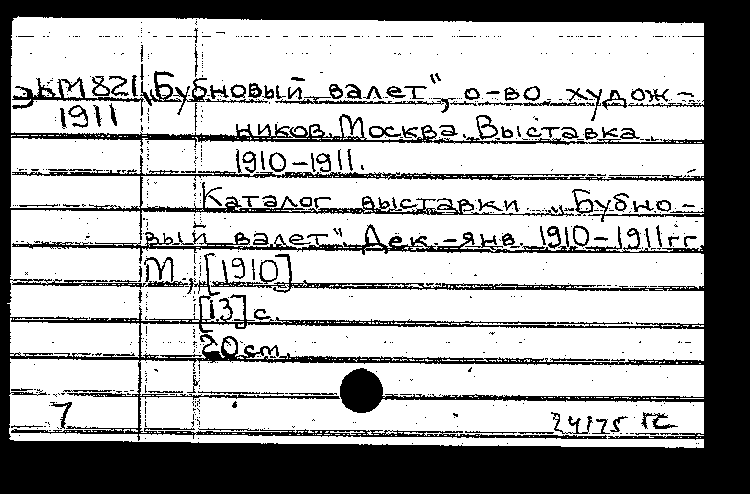 ЭКМ821 „Бубновый валет“, о-во худож-
1911 ников. Москва. Выставка.
1910-1911.
Каталог выставки „Бубно-
вый валет“. Дек.-янв. 1910-1911гг.
М., [1910]
[13] с.
20 см.
7 24175